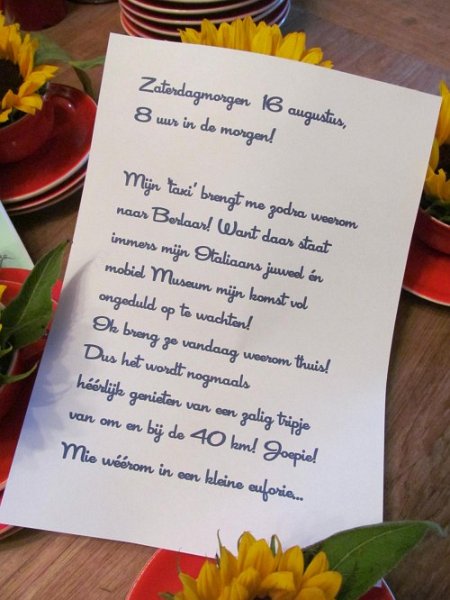 Zaterdagmorgen 16 augustus,
8 uur in de morgen!
Mijn 'taxi' brengt me zodra weerom
naar Berlaar! Want daar staat
immers mijn Italiaans juweel én
mobiel Museum mijn komst vol
ongeduld op te wachten!
Ik breng ze vandaag weerom thuis!
Dus het wordt nogmaals
héérlijk genieten van een zalig tripje
van om en bij de 40 km! Joepie!
Mie wéérom in een kleine euforie...